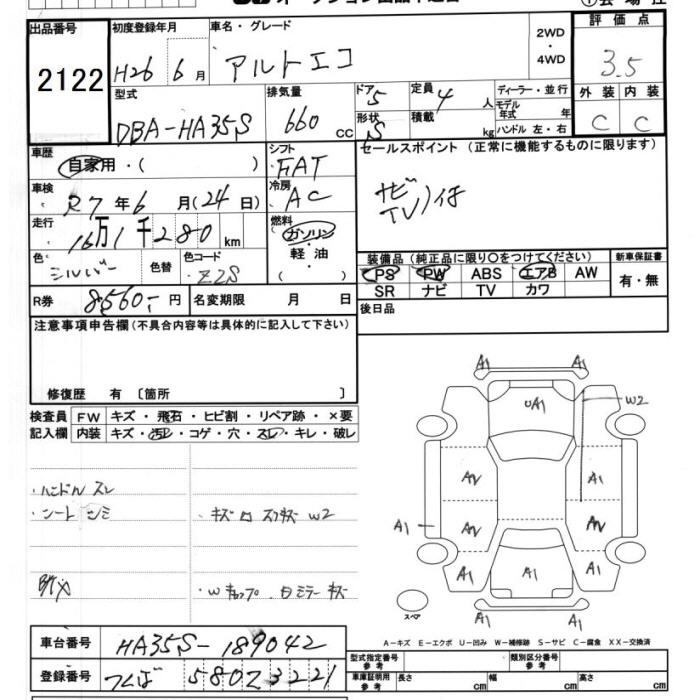 出品番号
2122
初度登録年月
H26 6月
車名・グレード
アルトエコ
2WD
・
4WD
評価点
3.5
型式
DBA-HA35S
排気量
660 cc
ドア 5
形状 S
定員 4 人
積載 kg
ディーラー・並行
モデル年式 年
ハンドル 左・右
外装 内装
C C
車歴
自家用・( )
シフト
FAT
セールスポイント (正常に機能するものに限ります)
ナビ
TV 付
車検
R7年6月(24日)
冷房
AC
走行
16万1千280km
燃料
ガソリン
・
軽油
色
シルバー
色替
色コード
Z2S
装備品 (純正品に限り○をつけてください)
PS PW ABS エアB AW
SR ナビ TV カワ
新車保証書
有・無
R券 8560-円
名変期限 月 日
後日品
注意事項申告欄(不具合内容等は具体的に記入して下さい)
修復歴 有 〔箇所 〕
検査員 FW キズ・飛石・ヒビ割・リペア跡・×要
記入欄 内装 キズ・汚れ・コゲ・穴・スレ・キレ・破レ
・ハンドル スレ
・シート シミ
W2
A1 A1
UA1
W2
A1
A1
A1
A1 A1
A1
A1 A1
スペア
A-キズ E-エクボ U-凹み W-補修跡 S-サビ C-腐食 XX-交換済
車台番号 HA35S-189042
登録番号 つくば 580 Z 3221
型式指定番号 参考
類別区分番号 参考
車庫証明用 参考
長さ cm
幅 cm
高さ cm